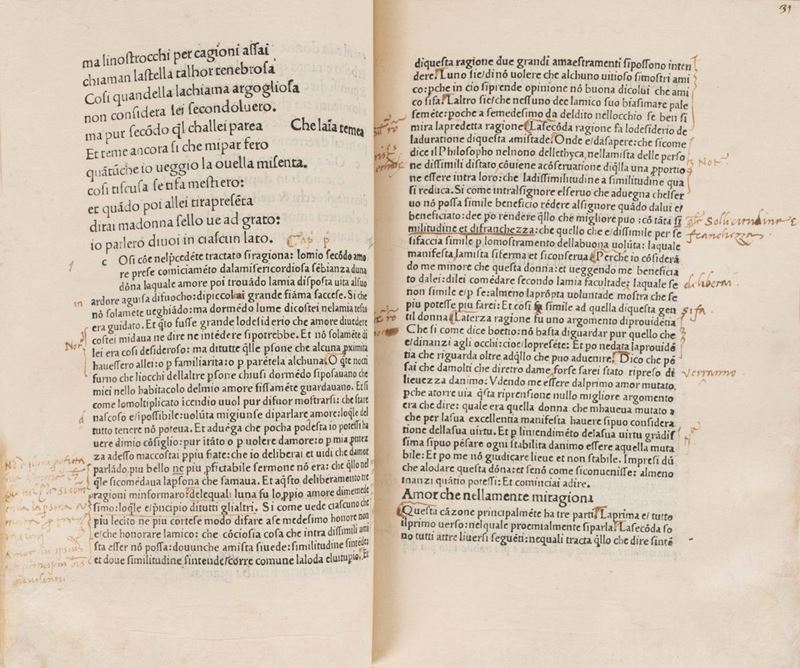 ma linostrocchi per cagioni assai
chiaman lastella talhor tenebrosa
Cosi quandella lachiama argogliosa
non considera lei secondoluero.
ma pur secódo q̃l challei parea Che laĩa temea
Et teme ancora si che mi par fero
quãtũche io ueggio la ouella misenta.
cosi tiscusa se tisa mestiero:
et quãdo poi allei tirapreséta
dirai madonna sello ue ad grato:
io parlero diuoi in ciascun lato. Cap p
c Osi cóe nelp̃cedéte tractato siragiona: lomio secódo amo
re prese comiciaméto dalamisericordiosa sébianza duna
dóna laquale amore poi trouãdo lamia disposta uita alsuo
ardore aguisa difuocho: dipiccolo ai grande fiãma faccese. Si che
nó solaméte ueghiãdo: ma dormédo lume dicostei nelamia testa
era guidato. Et q̃to fusse grande lodesiderio che amore diuedere
costei midaua ne dire ne intédere sipotrebbe. Et nó solaméte di
lei era cosi desideroso: ma ditutte q̃lle p̃sone che alcuna p̃ximita
hauessero allei: o p familiarita: o p parétela alchuna. O q̃te nocti
furno che liocchi dellaltre p̃sone chiusi dormédo siposauano che
mici nello habitacolo delmio amore fissaméte guardauano. Et si
come lomoltiplicato icendio uuol pur difuor mostrarsi: che star
nascoso e/ipossibile: uolũta migiunse diparlare amore: loq̃le del
tutto tenere nó poteua. Et aduéga che pocha podesta io potessi ha
uere dimio cósiglio: pur itãto o p uolere damore: o p mia pute
za adesso maccostai p̃ piu fiate: che io deliberai et uidi che damor
parlãdo, piu bello ne piu p̃fictabile sermone nó era: che q̃llo nel
q̃le sicomédaua lap̃sona che samaua. Et aq̃sto deliberaméto tre
ragioni minformaro: delequali luna fu lo p̃pio amore dimemede
simo: loq̃le e/p̃ncipio ditutti glialtri. Si come uede ciascuno che
piu lecito ne piu cortese modo disare ase medesimo honore non
e/che honorare lamico: che cóciosia cosa che intra dissimili ami
sta esser nó possa: douunche amista siuede: similitudine sintéde
et doue similitudine sintende/corre comune laloda eluitupio. Et
31
diquesta ragione due grandi amaestramenti sipossono inten
dere. Luno sie/di nó uolere che alchuno uitioso simostri ami
co: pche in cio siprende opinione nó buona dicolui che ami
co sifa. Laltro sie/che nessuno dee lamico suo biasimare pale
seméte: poche a semedesimo da deldito nellocchio se ben si
mira lapredetta ragione. Lasecóda ragione fa lodesiderio de
laduratione diquesta amistade. Onde e/dasapere: che sicome
dice il Philosopho nelnono dellethyca, nellamista delle perso
ne dissimili distato, cóuiene acóseruatione diq̃lla una p̃portio
ne essere intra loro: che ladissimilitudine a similitudine qua
si reduca. Si come intralsignore elseruo che aduegna chelser
uo nó possa simile beneficio rédere alsignore quãdo dalui e/
beneficiato: dee po rendere q̃llo che migliore puo: có tãta si
militudine et difranchezza: che quello che e/dissimile per se
sifaccia simile p lomostramento dellabuona uolũta: laquale
manifesta, lamista siferma et sicónserua. Perche io cósiderã
do me minore che questa donna: et ueggendo me beneficia
to dalei: dilei comédare secondo lamia facultade: laquale se
non simile e/p se: almeno lap̃rópta uoluntade mostra che se
piu potesse piu farei: Et cosi se simile ad quella diquesta gen
til donna. Laterza ragione fu uno argomento diprouidéria
Che si come dice boetio: nó basta diguardar pur quello che
e/dinanzi agli occhi: cioe/lopreséte: Et po nedata laprouidé
tia che riguarda oltre adq̃llo che puo aduenire. Dico che pé
sai che damolti che diretro dame, forse sarei stato ripreso di
lieuezza danimo: Vdendo me essere dalprimo amor mutato,
pche atorre uia q̃sta riprensione nullo migliore argomento
era che dire: quale era quella donna che mhaueua mutato a
che per lasua excellentia manifesta hauere sipuo considera
tione dellasua uirtu. Et p lintendiméto delasua uirtu grãdis
sima sipuo pésare ogni stabilita danimo essere aquella muta
bile: Et po me nó giudicare lieue et non stabile. Impresi dũ
che alodare questa dóna: et senó come siconuenisse: almeno
inanzi quãto potessi: Et cominciai adire.
Amor che nellamente miragiona
Questa cãzone principalméte ha tre parti. Laprima e/ tutto
ilprimo uerso: nelquale proemialmente siparla. Lasecóda so
no tutti attre liuersi seguéti: nequali tracta q̃llo che dire sinté
Not
Not
deliberai